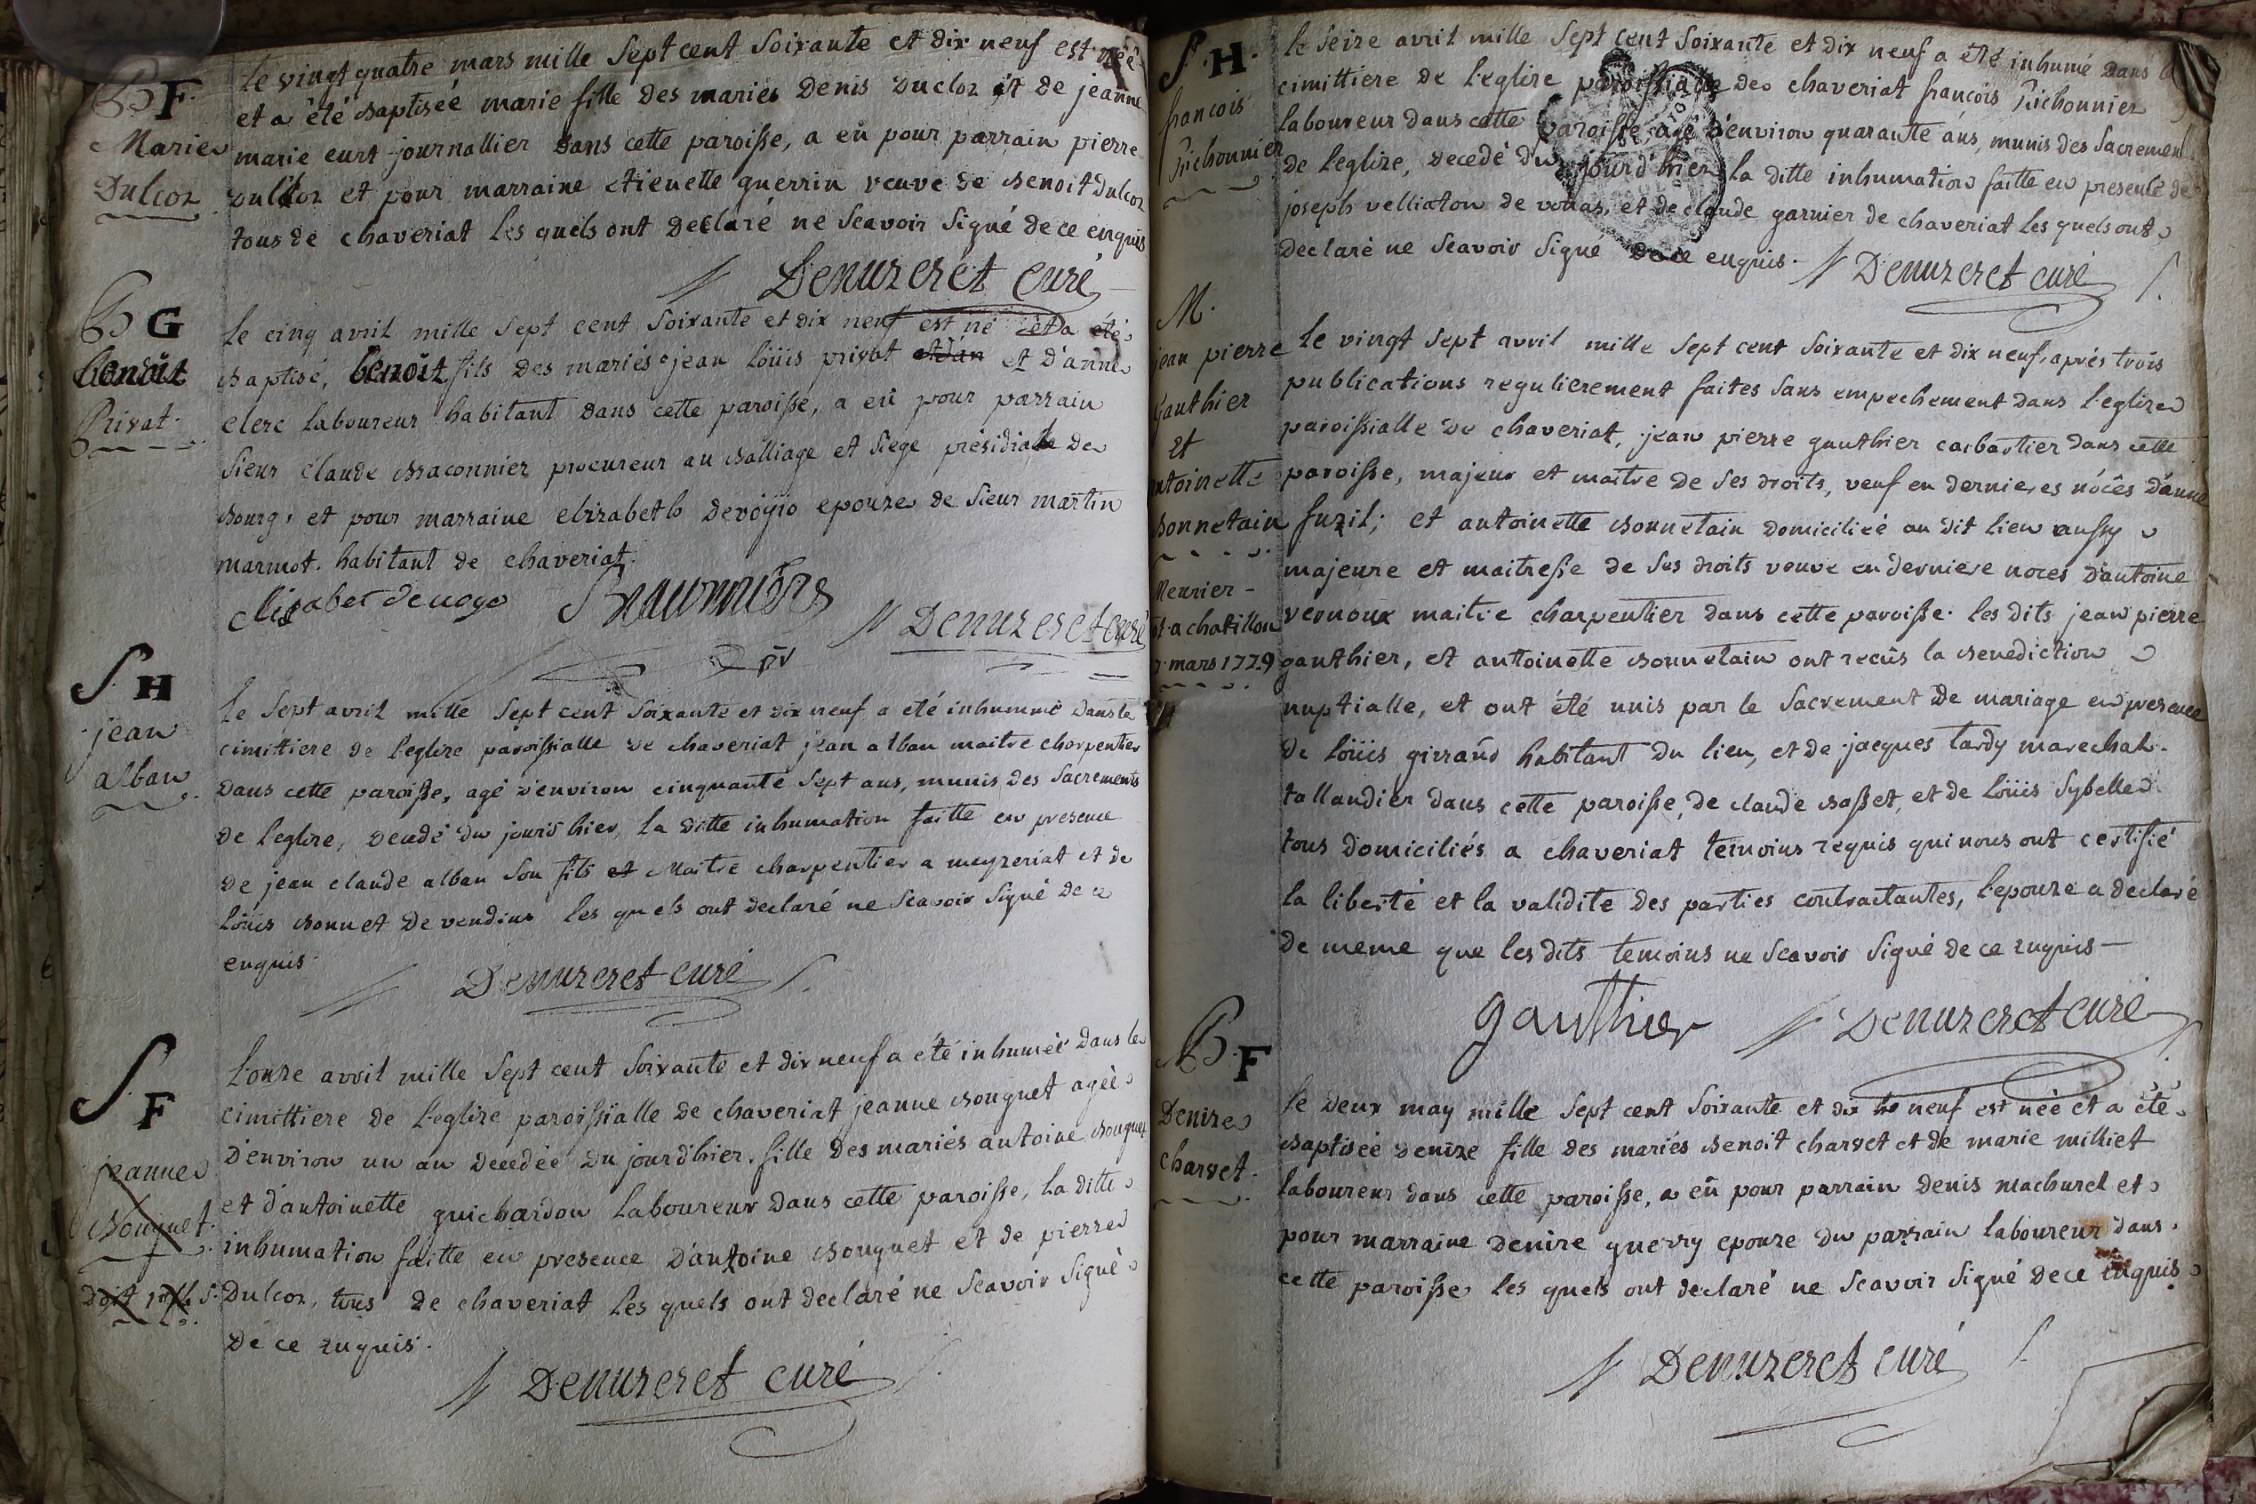 B F
Marie
Dulcoz
le vingt quatre mars mille sept cent soixante et dix neuf est née
et a été baptiseé marie fille des mariés denis Ducloz et de jeanne
marie curt journallier dans cette paroisse, a eû pour parrain pierre
Dulcoz et pour marraine etienette guerrin veuve de benoit dulcoz
tous de chaveriat les quels ont declaré ne scavoir signé de ce enquis
Denuzeret curé
B G
benoit
Privat
le cinq avril mille sept cent soixante et dix neuf est né et a été
baptisé, benoît fils des mariés jean loüis privat et d'anne
clerc laboureur habitant dans cette paroisse, a eû pour parrain
sieur claude braconnier procureur au balliage et siege présidiale de
bourg, et pour marraine elizabeth devogio epouze de sieur martin
marmot habitant de chaveriat.
Denuzeret curé
S H
jean
alban
le sept avril mille sept cent soixante et dix neuf a été inhummé dans le
cimittiere de l'eglize paroissialle de chaveriat jean alban maitre charpentier
dans cette paroisse, agé d'environ cinquante sept ans, munis des sacrements
de l'eglize, decedé du jourd'hier, la ditte inhumation faitte en presence
de jean claude alban son fils et maitre charpentier a meyzeriat et de
loüis bonnet de vendins les quels ont declaré ne scavoir signé de ce
enquis.
Denuzeret curé
S F
jeanne
bouquet
l'onze avril mille sept cent soixante et dix neuf a été inhumeé dans le
cimittiere de l'eglize paroissialle de chaveriat jeanne bouquet ageé
d'environ un an decedeé du jourd'hier. fille des mariés antoine bouquet
et d'antoinette guichardon laboureur dans cette paroisse, la ditte
inhumation faitte en presence d'antoine bouquet et de pierre
Dulcoz, tous de chaveriat les quels ont declaré ne scavoir signé
de ce enquis.
Denuzeret curé
S. H.
francois
Pichonnier
le seize avril mille sept cent soixante et dix neuf a été inhumé dans le
cimittiere de l'eglize paroissialle de chaveriat francois Pichonnier
laboureur dans cette paroisse agé d'environ quarante ans, munis des sacrement
de l'eglize, decedé du jourd'hier la ditte inhumation faitte en presence de
joseph velliaton de vonas, et de claude garnier de chaveriat les quels ont
declaré ne scavoir signé de ce enquis.
Denuzeret curé
M.
jean pierre
gauthier
et
antoinette
bonnetain
mars 1779
le vingt sept avril mille sept cent soixante et dix neuf, aprés trois
publications regulierement faites sans empechement dans l'eglize
paroissialle de chaveriat, jean pierre gauthier cabartier dans cette
paroisse, majeur et maître de ses droits, veuf en dernieres nôces d'anne
fuzil; et antoinette bonnetain domiciliée au dit lieu aussy
majeure et maitresse de ses droits veuve en derniere noces d'antoine
vernoux maitre charpentier dans cette paroisse. les dits jean pierre
gauthier, et antoinette bonnetain ont recüs la benediction
nuptialle, et ont été unis par le sacrement de mariage en presence
de loüis girraud habitant du lieu, et de jacques tardy marechal
tallandier dans cette paroisse, de claude basset, et de loüis sybelle
tous domiciliés a chaveriat temoins requis qui nous ont certifié
la liberté et la validite des parties contractantes, l'epouze a declaré
de meme que les dits temoins ne scavoir signé de ce enquis
gauthier Denuzeret curé
B. F
Denize
charvet.
le deux may mille sept cent soixante et dix neuf est née et a été
baptiseé denize fille des mariés benoit charvet et de marie milliet
laboureur dans cette paroisse, a eû pour parrain denis machurel et
pour marraine denize guerry epouze du parrain laboureur dans
cette paroisse les quels ont declaré ne scavoir signé de ce enquis
Denuzeret curé